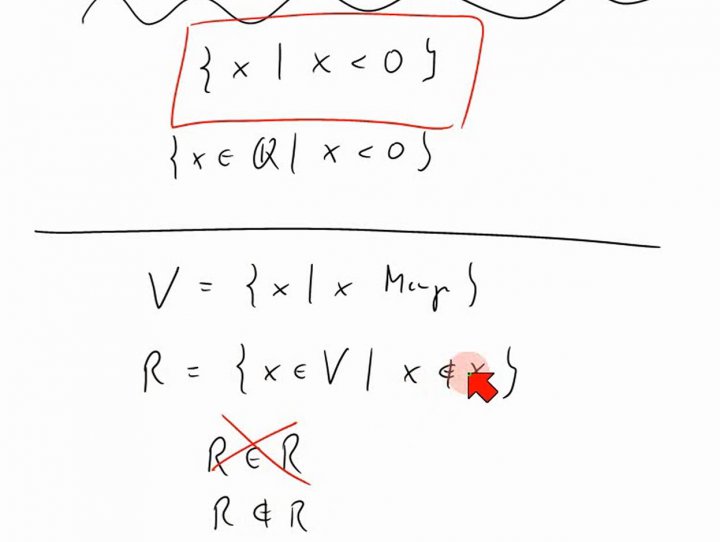 { x | x < 0 }
{ x ∈ ℝ | x < 0 }
V = { x | x Menge }
R = { x ∈ V | x ∉ x }
R ∈ R
R ∉ R